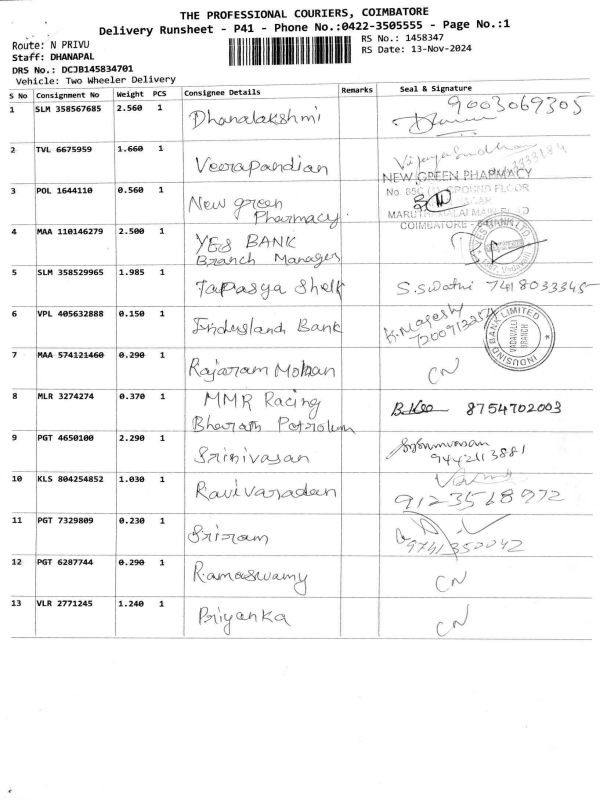 THE PROFESSIONAL COURIERS, COIMBATORE
Delivery Runsheet - P41 - Phone No.:0422-3505555 - Page No.:1
Route: N PRIVU
RS No.: 1458347
Staff: DHANAPAL
RS Date: 13-Nov-2024
DRS No.: DCJB145834701
Vehicle: Two Wheeler Delivery
S No Consignment No Weight PCS Consignee Details Remarks Seal & Signature
1 SLM 358567685 2.560 1 Dhanalakshmi 9003069305
2 TVL 6675959 1.660 1 Veerapandian
3 POL 1644110 0.560 1 New green
Pharmacy.
NEW GREEN PHARMACY
GROUND FLOOR
COIMBATORE
4 MAA 110146279 2.500 1 YES BANK
Branch Manager
YES BANK LTD.
5 SLM 358529965 1.985 1 Tapasya Shelk S.Swathi 7418033345
6 VPL 405632888 0.150 1 Indusland Bank K.Nagesh
7200913254
INDUSIND BANK LIMITED
VADAVALLI
BRANCH
7 MAA 574121460 0.290 1 Rajaram Mohan CN
8 MLR 3274274 0.370 1 MMR Racing
Bharath Petrolum
8754702003
9 PGT 4650100 2.290 1 Srinivasan
9442113881
10 KLS 804254852 1.030 1 Ravivaradean
9123568972
11 PGT 7329809 0.230 1 Sriram
9741350042
12 PGT 6287744 0.290 1 Ramaswamy CN
13 VLR 2771245 1.240 1 Priyanka CN